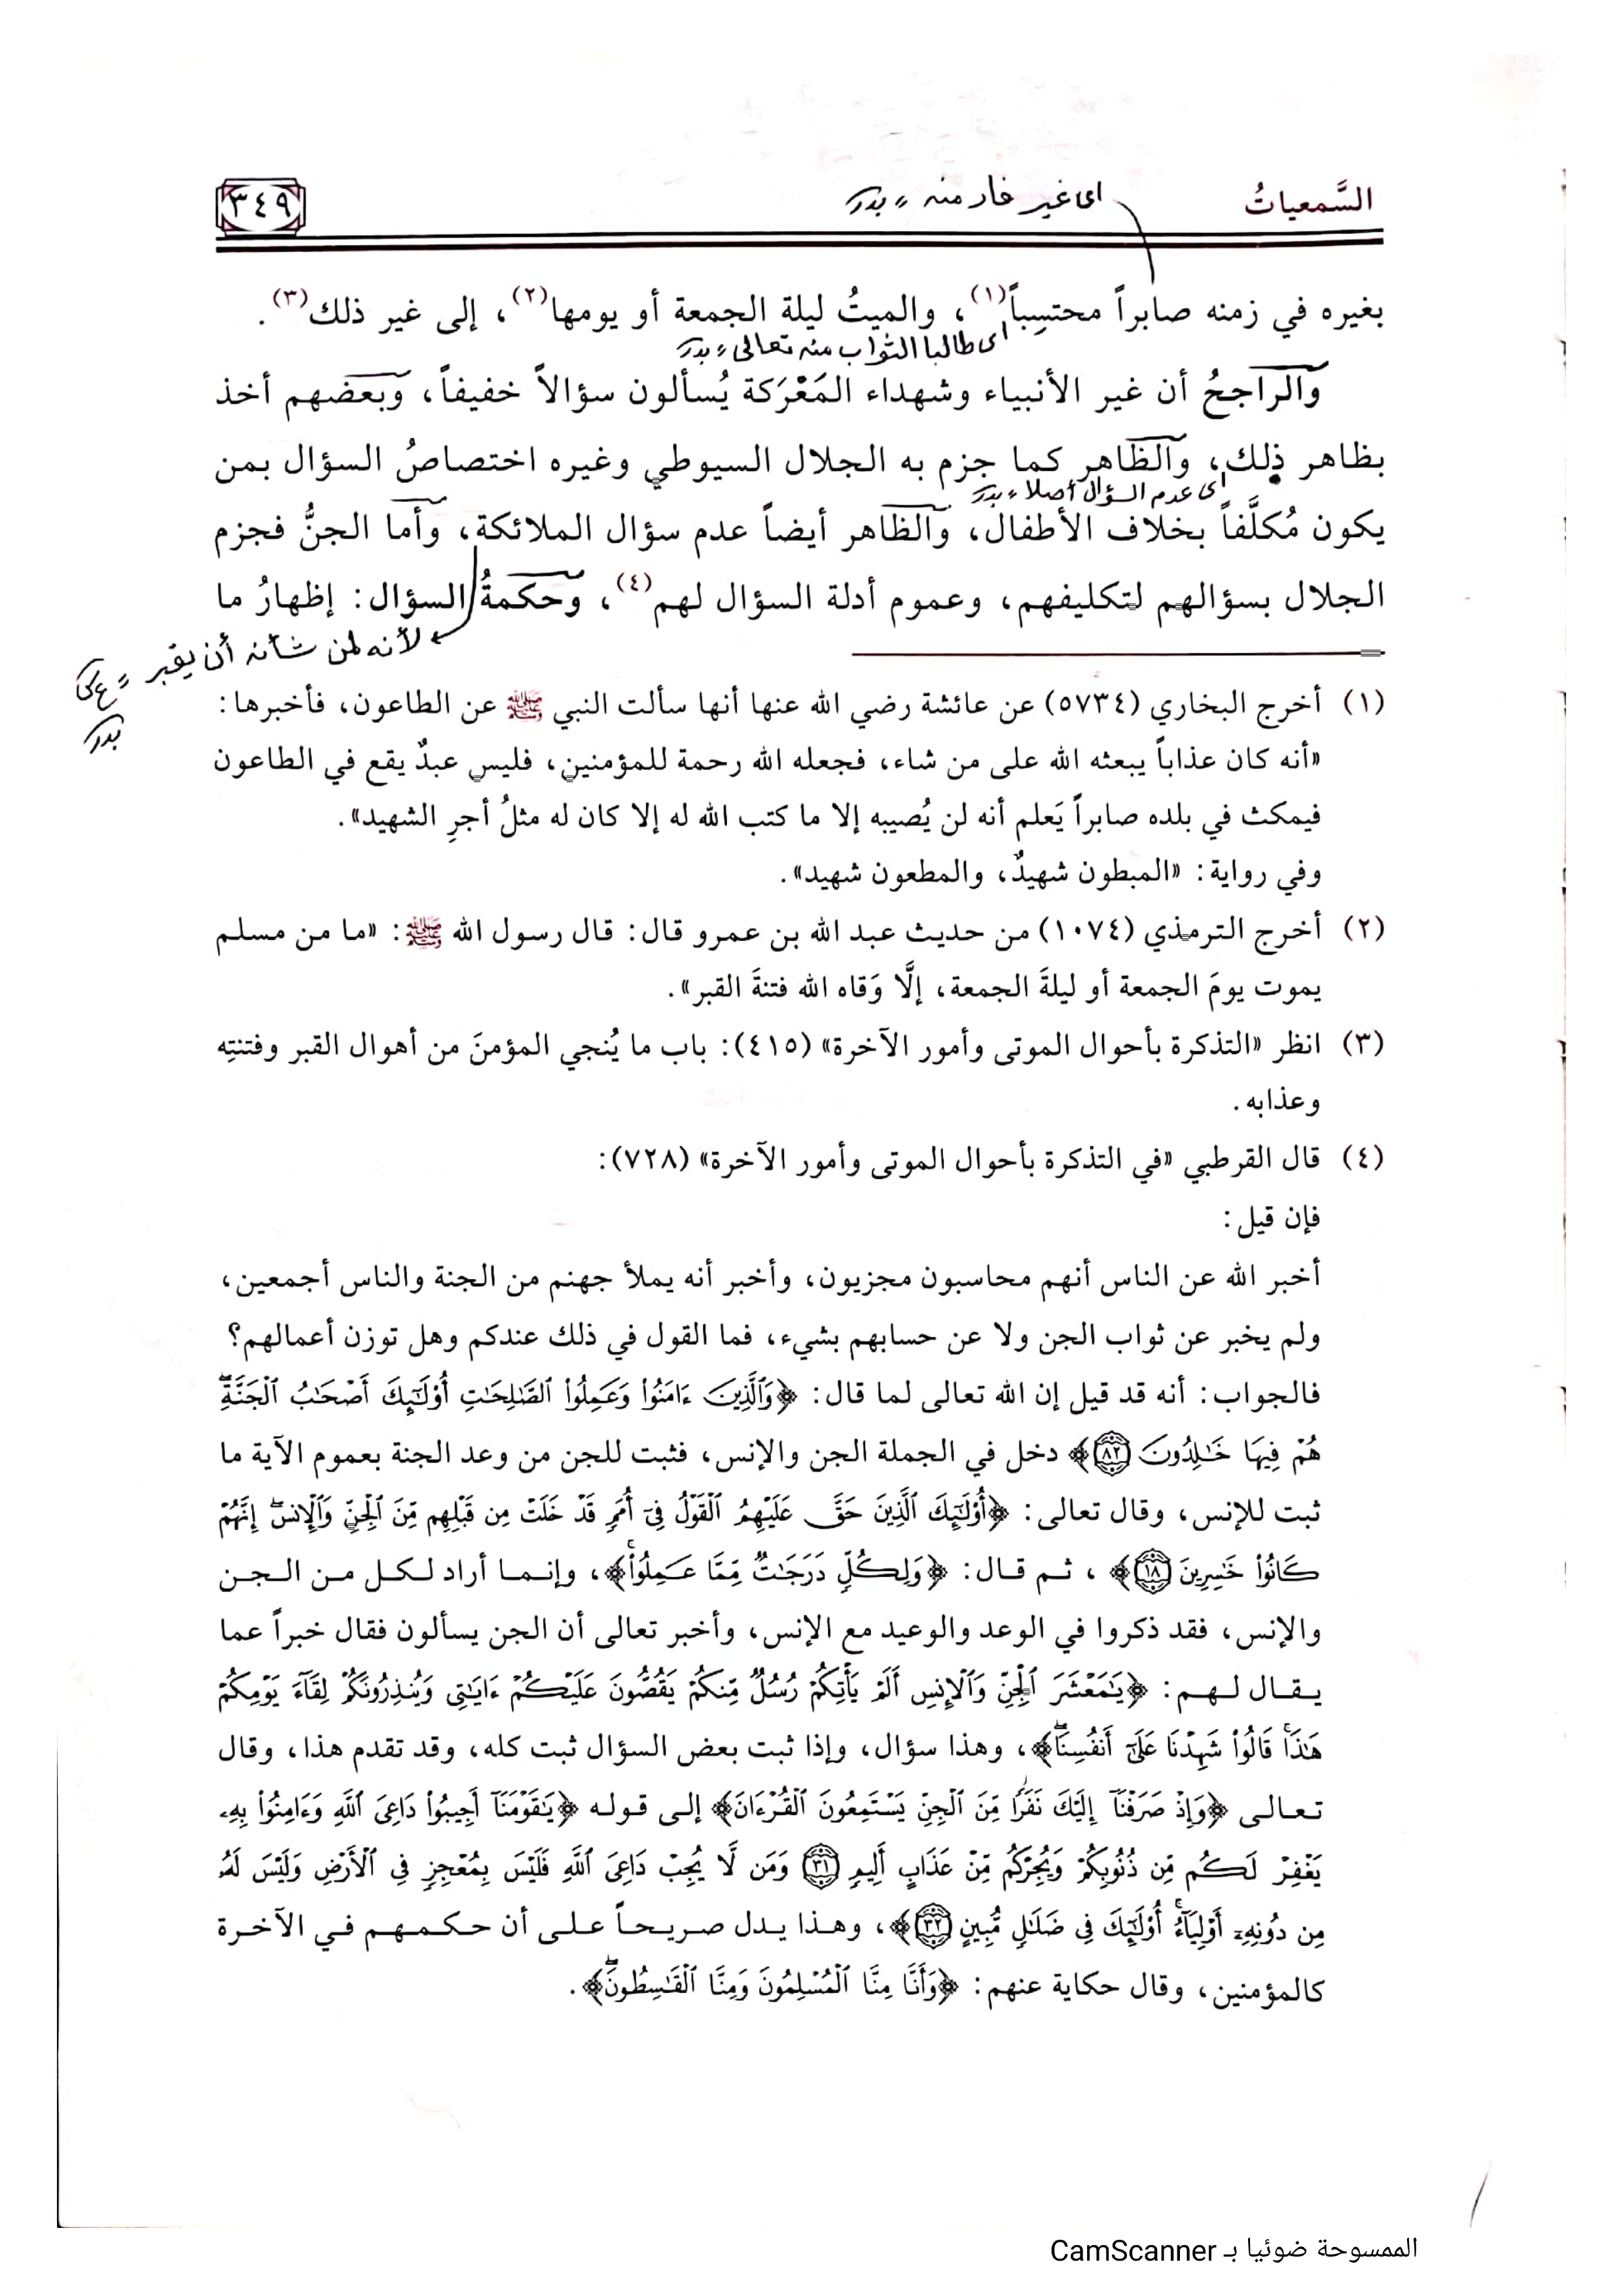 السَّمعياتُ
اى غير فار منه ، بدر
٣٤٩
بغيره في زمنه صابراً محتسِباً(١)، والميتُ ليلة الجمعة أو يومها(٢)، إلى غير ذلك(٣).
اى طالبا الثواب منه تعالى ، بدر
والراجحُ أن غير الأنبياء وشهداء المَعْرَكة يُسألون سؤالاً خفيفاً، وبعضهم أخذ
بظاهر ذلك، والظاهر كما جزم به الجلال السيوطي وغيره اختصاصُ السؤال بمن
اى عدم السؤال أصلا ، بدر
يكون مُكلَّفاً بخلاف الأطفال، والظاهر أيضاً عدم سؤال الملائكة، وأما الجنُّ فجزم
الجلال بسؤالهم لتكليفهم، وعموم أدلة السؤال لهم(٤)، وحكمةُ السؤال: إظهارُ ما
لأنه لمن شأنه أن يقبر
بدر
(١) أخرج البخاري (٥٧٣٤) عن عائشة رضي الله عنها أنها سألت النبي ﷺ عن الطاعون، فأخبرها:
«أنه كان عذاباً يبعثه الله على من شاء، فجعله الله رحمة للمؤمنين، فليس عبدٌ يقع في الطاعون
فيمكث في بلده صابراً يَعلم أنه لن يُصيبه إلا ما كتب الله له إلا كان له مثلُ أجرِ الشهيد».
وفي رواية: «المبطون شهيدٌ، والمطعون شهيد».
(٢) أخرج الترمذي (١٠٧٤) من حديث عبد الله بن عمرو قال: قال رسول الله ﷺ: «ما من مسلم
يموت يومَ الجمعة أو ليلةَ الجمعة، إلَّا وَقاه الله فتنةَ القبر».
(٣) انظر «التذكرة بأحوال الموتى وأمور الآخرة» (٤١٥): باب ما يُنجي المؤمنَ من أهوال القبر وفتنتِه
وعذابه.
(٤) قال القرطبي «في التذكرة بأحوال الموتى وأمور الآخرة» (٧٢٨):
فإن قيل:
أخبر الله عن الناس أنهم محاسبون مجزيون، وأخبر أنه يملأ جهنم من الجنة والناس أجمعين،
ولم يخبر عن ثواب الجن ولا عن حسابهم بشيء، فما القول في ذلك عندكم وهل توزن أعمالهم؟
فالجواب: أنه قد قيل إن الله تعالى لما قال: ﴿وَٱلَّذِينَ ءَامَنُوا۟ وَعَمِلُوا۟ ٱلصَّٰلِحَٰتِ أُو۟لَٰٓئِكَ أَصْحَٰبُ ٱلْجَنَّةِۖ
هُمْ فِيهَا خَٰلِدُونَ ٨٢﴾ دخل في الجملة الجن والإنس، فثبت للجن من وعد الجنة بعموم الآية ما
ثبت للإنس، وقال تعالى: ﴿أُو۟لَٰٓئِكَ ٱلَّذِينَ حَقَّ عَلَيْهِمُ ٱلْقَوْلُ فِىٓ أُمَمٍ قَدْ خَلَتْ مِن قَبْلِهِم مِّنَ ٱلْجِنِّ وَٱلْإِنسِۖ إِنَّهُمْ
كَانُوا۟ خَٰسِرِينَ ١٨﴾، ثم قال: ﴿وَلِكُلٍّ دَرَجَٰتٌ مِّمَّا عَمِلُوا۟ۖ﴾، وإنما أراد لكل من الجن
والإنس، فقد ذكروا في الوعد والوعيد مع الإنس، وأخبر تعالى أن الجن يسألون فقال خبراً عما
يقال لهم: ﴿يَٰمَعْشَرَ ٱلْجِنِّ وَٱلْإِنسِ أَلَمْ يَأْتِكُمْ رُسُلٌ مِّنكُمْ يَقُصُّونَ عَلَيْكُمْ ءَايَٰتِى وَيُنذِرُونَكُمْ لِقَآءَ يَوْمِكُمْ
هَٰذَاۚ قَالُوا۟ شَهِدْنَا عَلَىٰٓ أَنفُسِنَاۖ﴾، وهذا سؤال، وإذا ثبت بعض السؤال ثبت كله، وقد تقدم هذا، وقال
تعالى ﴿وَإِذْ صَرَفْنَآ إِلَيْكَ نَفَرًا مِّنَ ٱلْجِنِّ يَسْتَمِعُونَ ٱلْقُرْءَانَ﴾ إلى قوله ﴿يَٰقَوْمَنَآ أَجِيبُوا۟ دَاعِىَ ٱللَّهِ وَءَامِنُوا۟ بِهِۦ
يَغْفِرْ لَكُم مِّن ذُنُوبِكُمْ وَيُجِرْكُم مِّنْ عَذَابٍ أَلِيمٍ ٣١ وَمَن لَّا يُجِبْ دَاعِىَ ٱللَّهِ فَلَيْسَ بِمُعْجِزٍ فِى ٱلْأَرْضِ وَلَيْسَ لَهُۥ
مِن دُونِهِۦٓ أَوْلِيَآءُۚ أُو۟لَٰٓئِكَ فِى ضَلَٰلٍ مُّبِينٍ ٣٢﴾، وهذا يدل صريحاً على أن حكمهم في الآخرة
كالمؤمنين، وقال حكاية عنهم: ﴿وَأَنَّا مِنَّا ٱلْمُسْلِمُونَ وَمِنَّا ٱلْقَٰسِطُونَۖ﴾.
الممسوحة ضوئيا بـ CamScanner